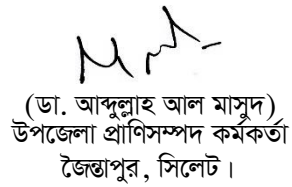 (ডা. আব্দুল্লাহ আল মাসুদ)
উপজেলা প্রাণিসম্পদ কর্মকর্তা
জৈন্তাপুর, সিলেট।